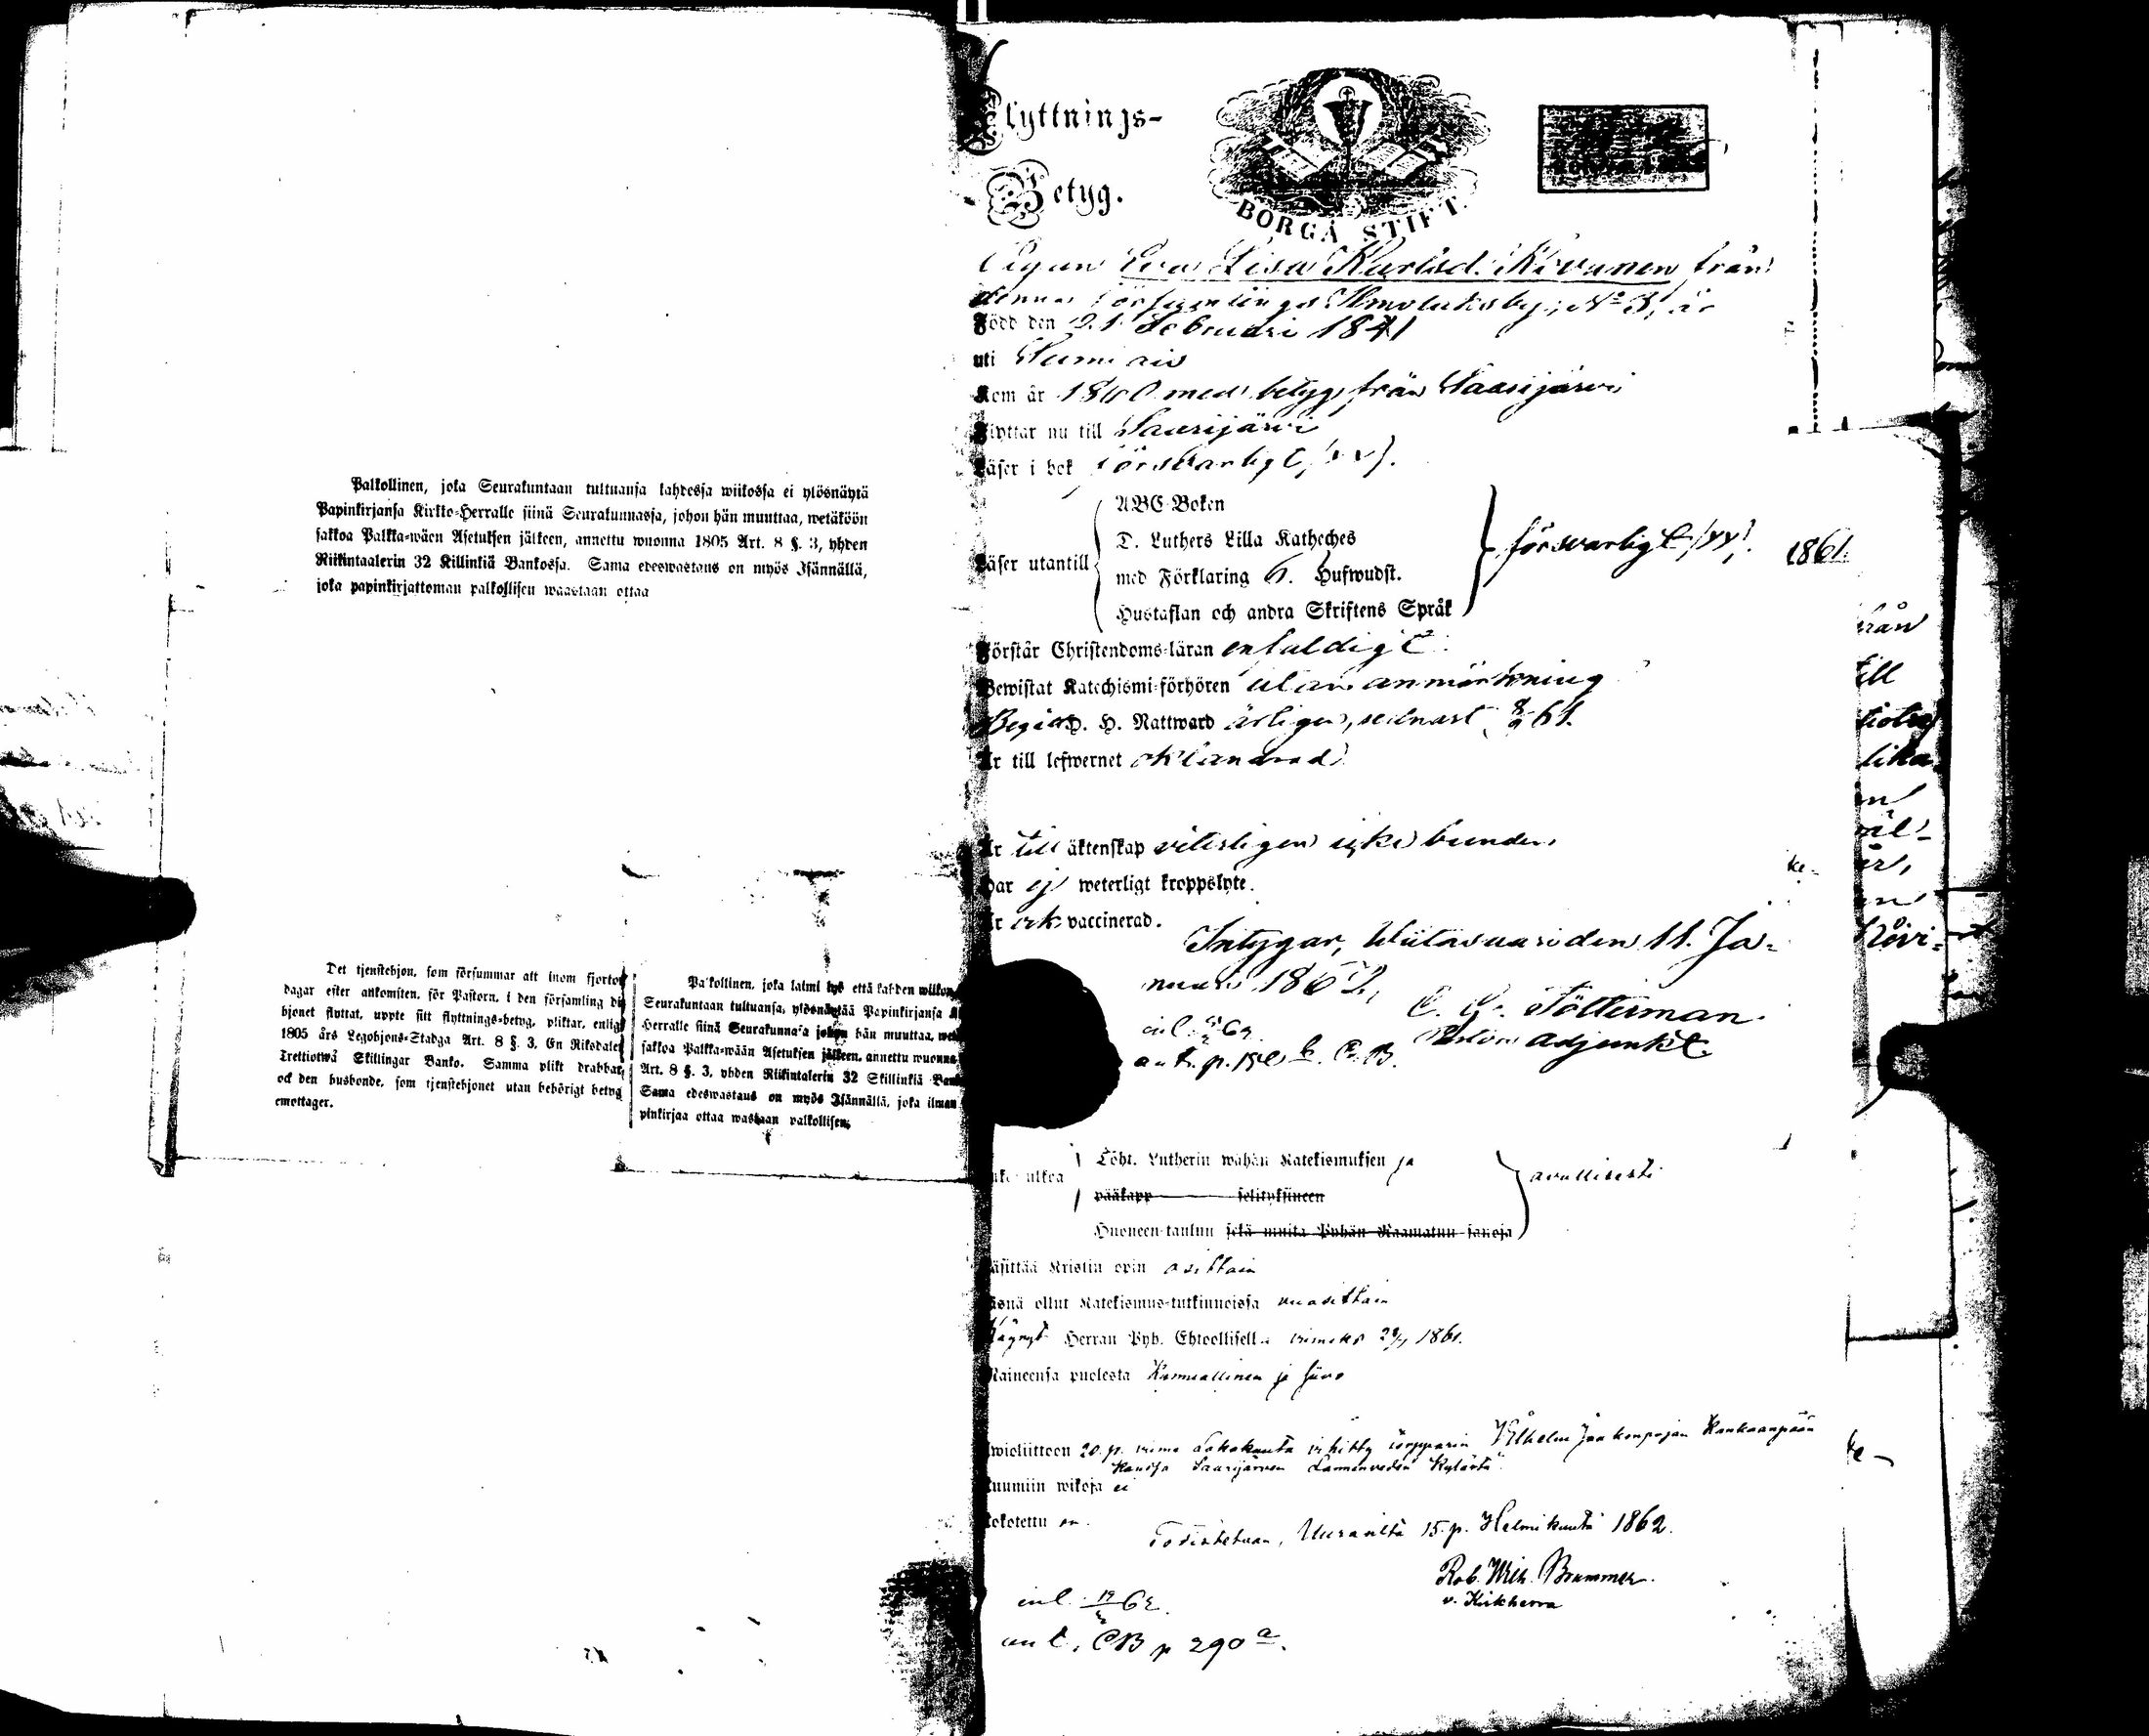 Palkollinen, joka Seurakuntaan tultuansa kahdessa wiikossa ei ylösnäytä
Papinkirjansa Kirkko-Herralle siinä Seurakunnassa, johon hän muuttaa, wetäköön
sakkoa Palkka-wäen Asetuksen jälkeen, annettu wuonna 1805 Art. 8 §. 3, yhden
Riikintaalerin 32 Killinkiä Bankossa. Sama edeswastaus on myös Isännällä,
joka papinkirjattoman palkollisen waastaan ottaa
Det tjenstehjon, som försummar att inom fjorton
dagar efter ankomsten, för Pastorn, i den församling di
hjonet flyttat, uppte sitt flyttnings-betyg, pliktar, enligt
1805 års Legohjons-Stadga Art. 8 §. 3, En Riksdaler
Trettiotwå Skillingar Banko. Samma plikt drabbar,
ock den husbonde, som tjenstehjonet utan behörigt betyg
emottager.
Palkollinen, joka laimi lyö että kahden wiikon
Seurakuntaan tultuansa, ylösnäyttää Papinkirjansa K
Herralle siinä Seurakunna'a johon hän muuttaa, wet
sakkoa Palkka-wään Asetuksen jälkeen, annettu wuonna
Art. 8 §. 3, yhden Riikintalerin 32 Skillinkiä Ban
Sama edeswastaus on myös Isännällä, joka ilman
pinkirjaa ottaa wastaan palkollisen.
Flyttnings-
Betyg.
BORGÅ STIFT.
Pigan Eva Lisa Karlsd. Kivanen från
denna församlings Hmoluksby, No 3, är
Född den 21 Februari 1841
uti Sumiais
Kom år 1860 med betyg från Saarijärvi
Flyttar nu till Saarijärvi
Läser i bok försvarligt, (vv).
Läser utantill
ABC-Boken
D. Luthers Lilla Katheches
med Förklaring 6. Hufwudst.
Hustaflan och andra Skriftens Språk
försvarligt (yy).
1861.
Förstår Christendoms-läran enfaldigt
Bewistat Katechismi-förhören utan anmärkning
Begått H. H. Nattward årligen, sednast 8/9 61.
Är till lefwernet oklandrad
Är till äktenskap veterligen icke bunden
Har ej weterligt kroppslyte.
Är ock vaccinerad.
Intygar, Wiitasaari den 11. Ja-
nuari 1862,
C. G. Tötterman
Pastors Adjunkt.
ant. p. 151 b. C. B.
ulkoa
Toht. Lutherin wähän Katekismuksen ja
pääkapp selityksineen
Huoneen-taulun sekä muita Pyhän Raamatun sanoja
awullisesti
Käsittää Kristin opin osittain
Läsnä ollut Katekismus-tutkinnoissa vuosittain
Käynyt Herran Pyh. Ehtoollisella viimeksi 29/9 1861.
Maineensa puolesta Kunniallinen ja hyvä
Awioliittoon 20. p. viime Lokakuuta vihitty torpparin Wilhelm Jaakonpojan Kankaanpään
kanssa Saarijärven Lannenveden kylästä.
Ruumiin wikoja ei
Rokotettu on.
Todistetaan, Uuraisilta 15. p. Helmikuuta 1862.
Rob. Wilh. Brummer.
v. Kirkherra
inl. 19/2 62.
ant. CB p 290 a.
från
till